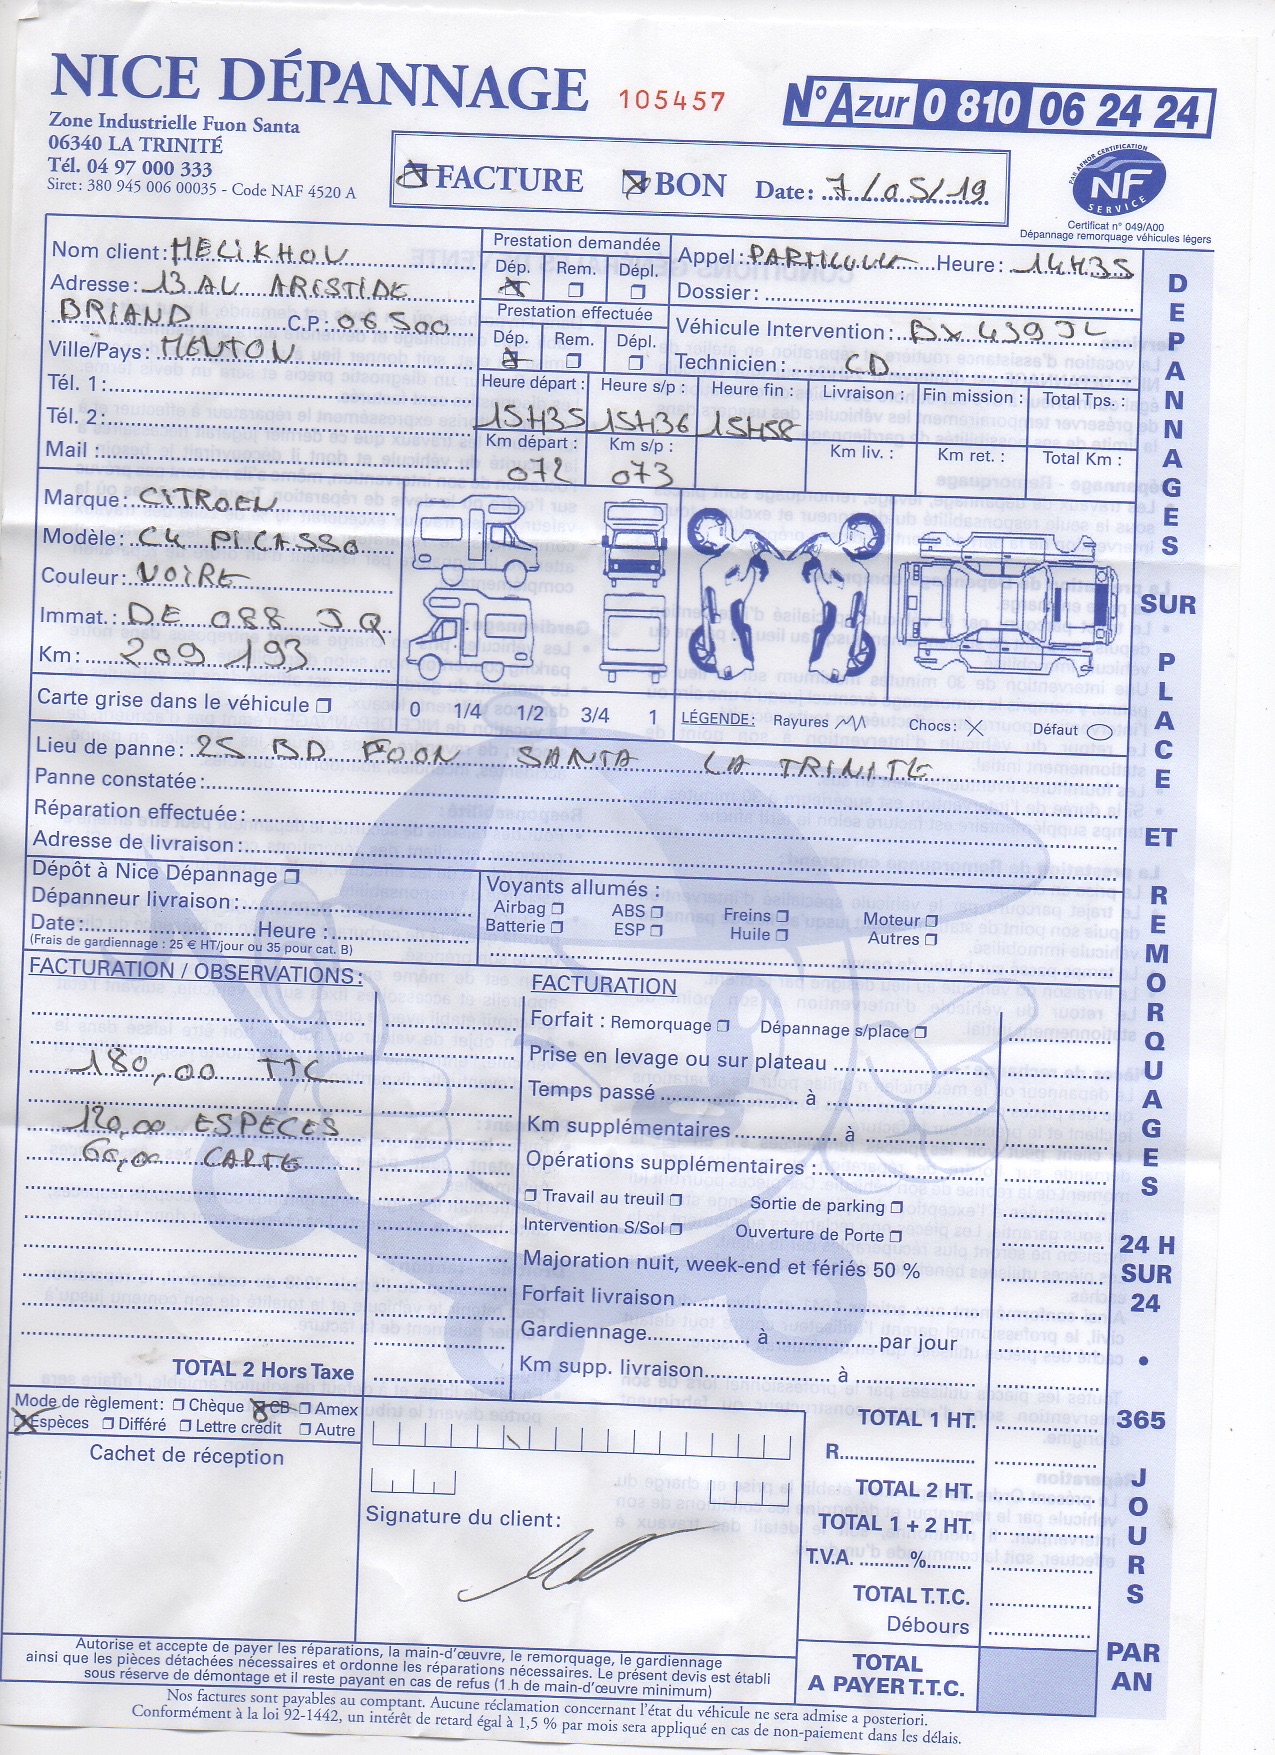 NICE DÉPANNAGE 105457 N°Azur 0 810 06 24 24
Zone Industrielle Fuon Santa
06340 LA TRINITÉ
Tél. 04 97 000 333
Siret : 380 945 006 00035 - Code NAF 4520 A
FACTURE BON Date : 7/05/19
PAR AFNOR CERTIFICATION
NF
SERVICE
Certificat n° 049/A00
Dépannage remorquage véhicules légers
Nom client : MELIKHOV
Adresse : 13 AL ARISTIDE
BRIAND C.P. : 06500
Ville/Pays : MENTON
Tél. 1 :
Tél. 2 :
Mail :
Prestation demandée
Dép. Rem. Dépl.
Prestation effectuée
Dép. Rem. Dépl.
Appel : Heure : 14H35
Dossier :
Véhicule Intervention : BX 439 JL
Technicien : CD
Heure départ : Heure s/p : Heure fin : Livraison : Fin mission : Total Tps. :
15H35 15H36 15H58
Km départ : Km s/p : Km liv. : Km ret. : Total Km :
072 073
Marque : CITROEN
Modèle : C4 PICASSO
Couleur : NOIRE
Immat. : DE 088 JQ
Km : 209 193
Carte grise dans le véhicule
0 1/4 1/2 3/4 1
LÉGENDE : Rayures Chocs : Défaut
Lieu de panne : 25 BD FOON SANTA LA TRINITE
Panne constatée :
Réparation effectuée :
Adresse de livraison :
Dépôt à Nice Dépannage
Dépanneur livraison :
Date : Heure :
(Frais de gardiennage : 25 € HT/jour ou 35 pour cat. B)
Voyants allumés :
Airbag ABS Freins Moteur
Batterie ESP Huile Autres
FACTURATION / OBSERVATIONS :
180,00 TTC
120,00 ESPECES
60,00 CARTE
TOTAL 2 Hors Taxe
FACTURATION
Forfait : Remorquage Dépannage s/place
Prise en levage ou sur plateau
Temps passé à
Km supplémentaires à
Opérations supplémentaires :
Travail au treuil Sortie de parking
Intervention S/Sol Ouverture de Porte
Majoration nuit, week-end et fériés 50 %
Forfait livraison
Gardiennage à par jour
Km supp. livraison à
Mode de règlement : Chèque CB Amex
Espèces Différé Lettre crédit Autre
Cachet de réception
Signature du client :
TOTAL 1 HT.
R.
TOTAL 2 HT.
TOTAL 1 + 2 HT.
T.V.A. %
TOTAL T.T.C.
Débours
TOTAL
A PAYER T.T.C.
Autorise et accepte de payer les réparations, la main-d'œuvre, le remorquage, le gardiennage
ainsi que les pièces détachées nécessaires et ordonne les réparations nécessaires. Le présent devis est établi
sous réserve de démontage et il reste payant en cas de refus (1.h de main-d'œuvre minimum)
Nos factures sont payables au comptant. Aucune réclamation concernant l'état du véhicule ne sera admise a posteriori.
Conformément à la loi 92-1442, un intérêt de retard égal à 1,5 % par mois sera appliqué en cas de non-paiement dans les délais.
DEPANNAGES SUR PLACE ET REMORQUAGES
24 H
SUR
24
•
365
JOURS
PAR
AN